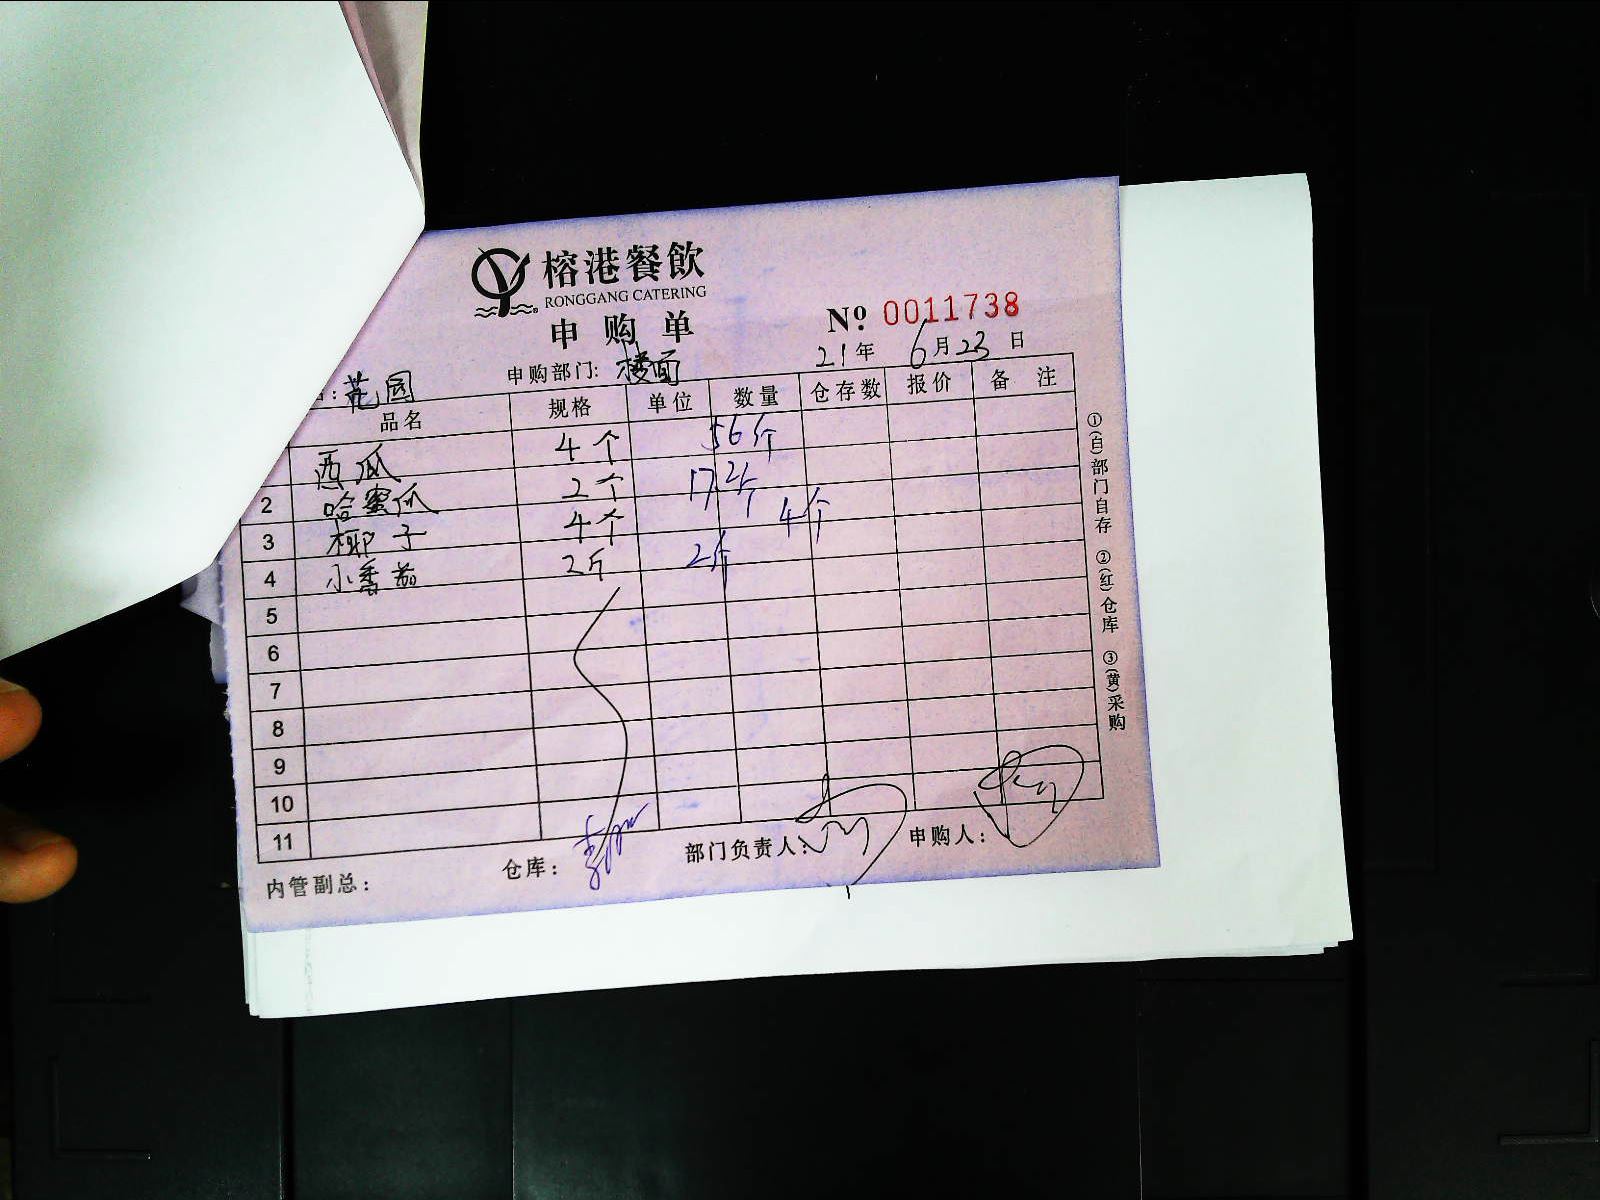 榕港餐飲
RONGGANG CATERING
申购单
№ 0011738
21年 6月23日
:花园 申购部门:楼面
品名 规格 单位 数量 仓存数 报价 备注
西瓜 4个 56斤
2 哈蜜瓜 2个 17.2斤
3 椰子 4个 4个
4 小番茄 2斤 2斤
5
6
7
8
9
10
11
内管副总: 仓库: 部门负责人: 申购人:
①(白)部门自存 ②(红)仓库 ③(黄)采购